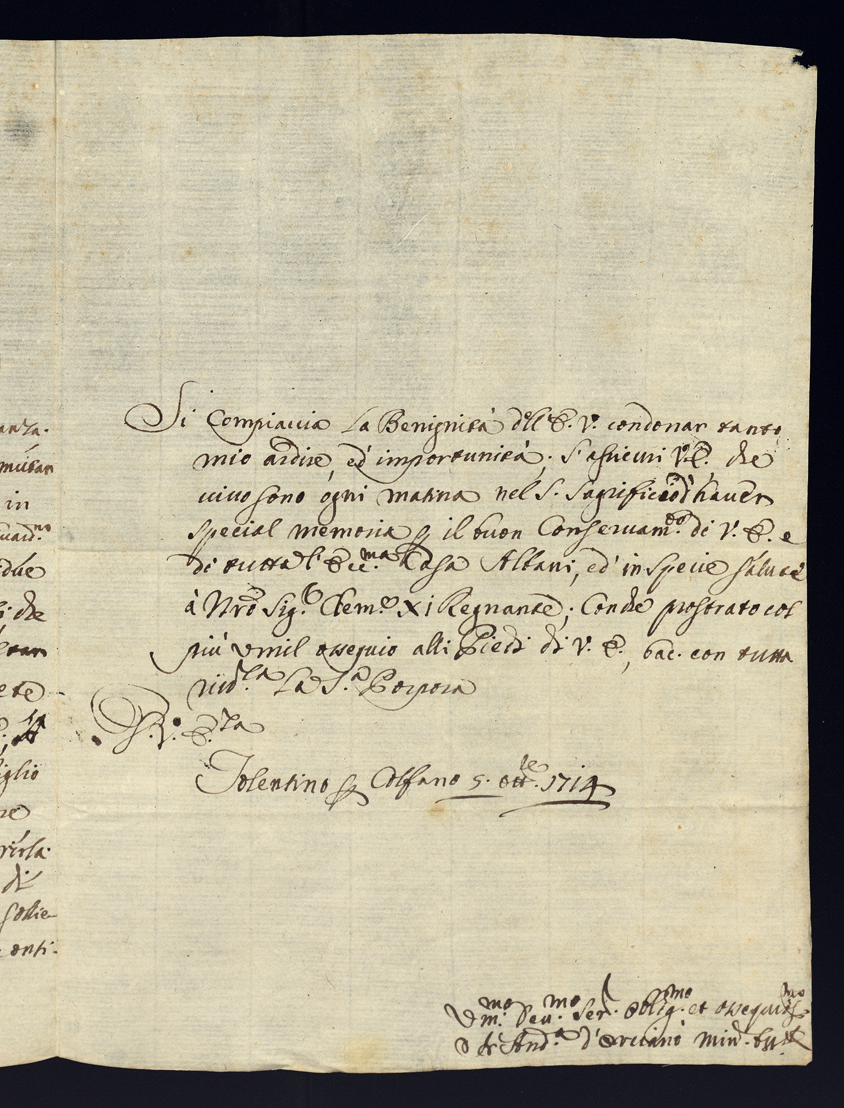 anza.
mutar
in
due
che
ete
iglio
re
di
sollie
onti.
Si Compiaccia La Benignità dell'E. V. condonar tanto
mio ardire, ed importunità; S'assicuri V. E. che
vivo sono ogni matina nel S. Sagrificio d'haver
special memoria p il buon Conservam.to di V. E. e
di tutta l'Ecc.ma Casa Albani, ed' in specie salute
à Nrõ Sig.re Clem.e XI Regnante; Conche prostrato col
più vmil ossequio alli Piedi di V. E., bac. con tutta
La S.a Porpora
D. V. E.za
Tolentino p Colfano 5. ott.re 1714
V.mo Deu.mo Ser. oblig.mo et ossequios.mo
fr And.a d'orciano min.